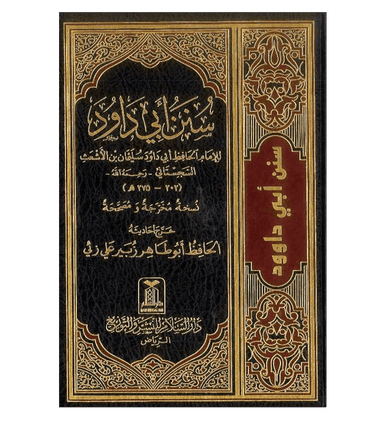 سنن أبي داود
للإمام الحافظ أبي داود سليمان بن الأشعث
السجستاني - رحمه الله -
(٢٠٢ - ٢٧٥ هـ)
نسخة مخرجة و مصححة
خرج أحاديثه
الحافظ أبو طاهر زبير علي زئي
دار السلام للنشر والتوزيع
الرياض
سنن أبي داوود